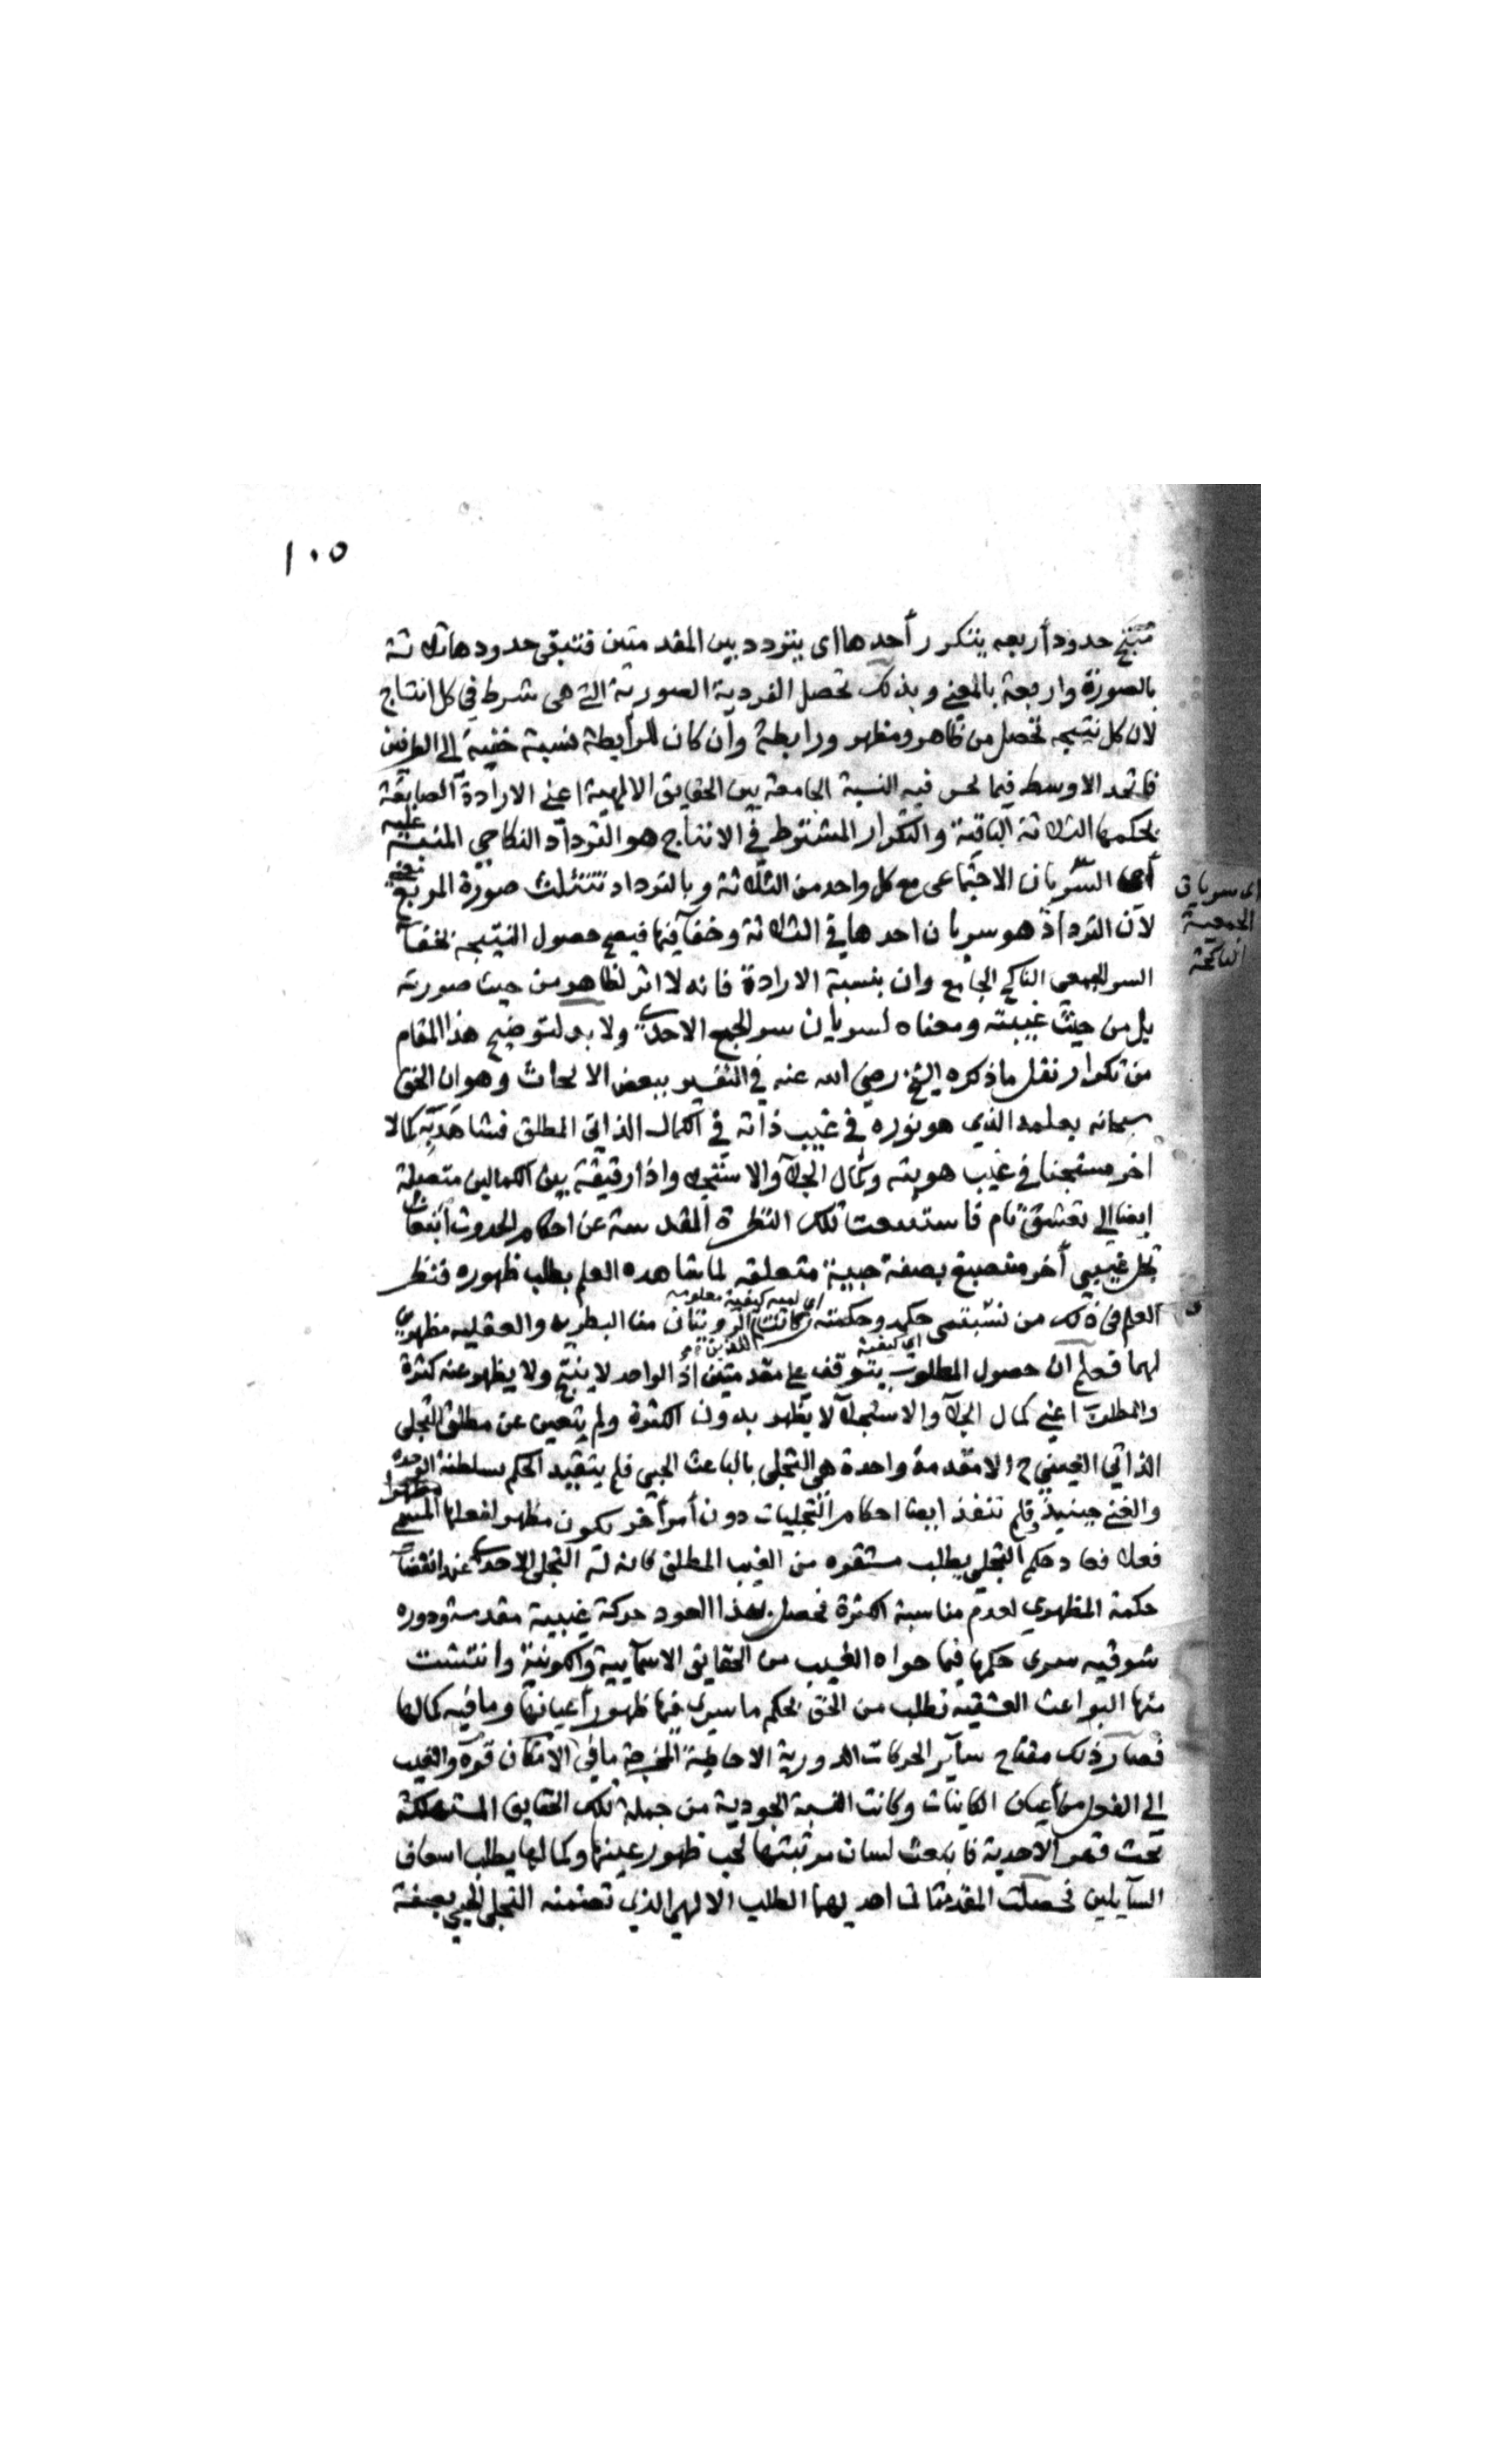 ١٠٥
حدود أربعه يتكرر أحدها اى يتردد بين المقدمتين فتبقى حدودها ثلاثة
بالصورة واربعة بالمعنى وبذلك تحصل الفردية الصورية التى هى شرط في كل انتاج
لان كل نتيجه تحصل من ظاهر ومظهر ورابطة وان كان للرابطة نسبة خفية الى الطرفين
فالحد الاوسط فيما نحن فيه النسبة الجامعة بين الحقايق الالهية اعنى الارادة الصابغة
بحكمها الثلاثة الباقية والتكرار المشترط في الانتاج هو الترداد النكاحي المنبه عليه
أى السريان الاجتماعى مع كل واحد من الثلاثة وبالترداد تتثلث صورة المربع
لان الترداد هو سريان احدها في الثلاثة وخفآ فيها فيصح حصول النتيجه بخفآ
السر الجمعي الناكح الجامع وان بنسبة الارادة فانه لا اثر لظاهر من حيث صورته
بل من حيث غيبته ومعناه لسريان سر الجمع الاحدى ولا بد لتوضيح هذا المقام
من تكرار نقل ما ذكره الشيخ رضى الله عنه في التفسير ببعض الابحاث وهو ان الحق
سبحانه بعلمه الذي هو نوره في غيب ذاته في الكمال الذاتى المطلق فشاهد به كمالا
اخر مستجنا في غيب هويته وكمال الجلآ والاستجلآ واذا رقيقة بين الكمالين متصلة
ايضا الى تعشق تام فاستتبعت تلك النظرة المقدسة عن احكام الحدوث انبعاث
تجل غيبي أخر منصبغ بصفة حبية متعلقه لما شاهده العلم بطلب ظهوره فنظر
العلم في ذلك من نسبتى حكمه وحكمته
لهما فعلم ان حصول المطلوب يتوقف على مقدمتين اذ الواحد لا ينتج ولا يظهر عنه كثرة
والمطلوب اعنى كمال الجلآ والاستجلآ لا يظهر بدون الكثرة ولم يتعين عن مطلق التجلى
الذاتي الغيبي ح الا مقدمة واحدة هى التجلى بالباعث الحبى فلم يتقيد الحكم بسلطنة الوحده
والغنى حينيذ فلم تنفذ ايضا احكام التجليات دون أمر أخر يكون مظهر لفعلها المسمى
فعلا فعاد حكم التجلي يطلب مستقره من الغيب المطلق التجلى الاحدى عند انقضآ
حكمة المظهري لعدم مناسبة الكثرة فحصل بهذا العود حركة غيبية مقدسة ودوره
شوقيه سرى حكمها فيما حواه الغيب من الحقايق الاسمآيية والكونية وانتشت
منها البواعث العشقيه تطلب من الحق بحكم ما سرى فيها ظهور أعيانها وما فيه كمالها
فصار ذلك مفتاح سآير الحركات الدورية الاحاطية المخرجة ما في الامكان قوة والغيب
الى الفعل من أعيان الكاينات وكانت النسبة الجودية من جملة تلك الحقايق المستهلكة
تحت قهر الاحدية فانبعث لسان مرتبتها لحب ظهور عينها وكمالها يطلب اسعاف
السآيلين فحصلت المقدمتان احديهما الطلب الالهي الذي تضمنه التجلى الحبي بصفة
اى سريان
الجمعية
الناكحة